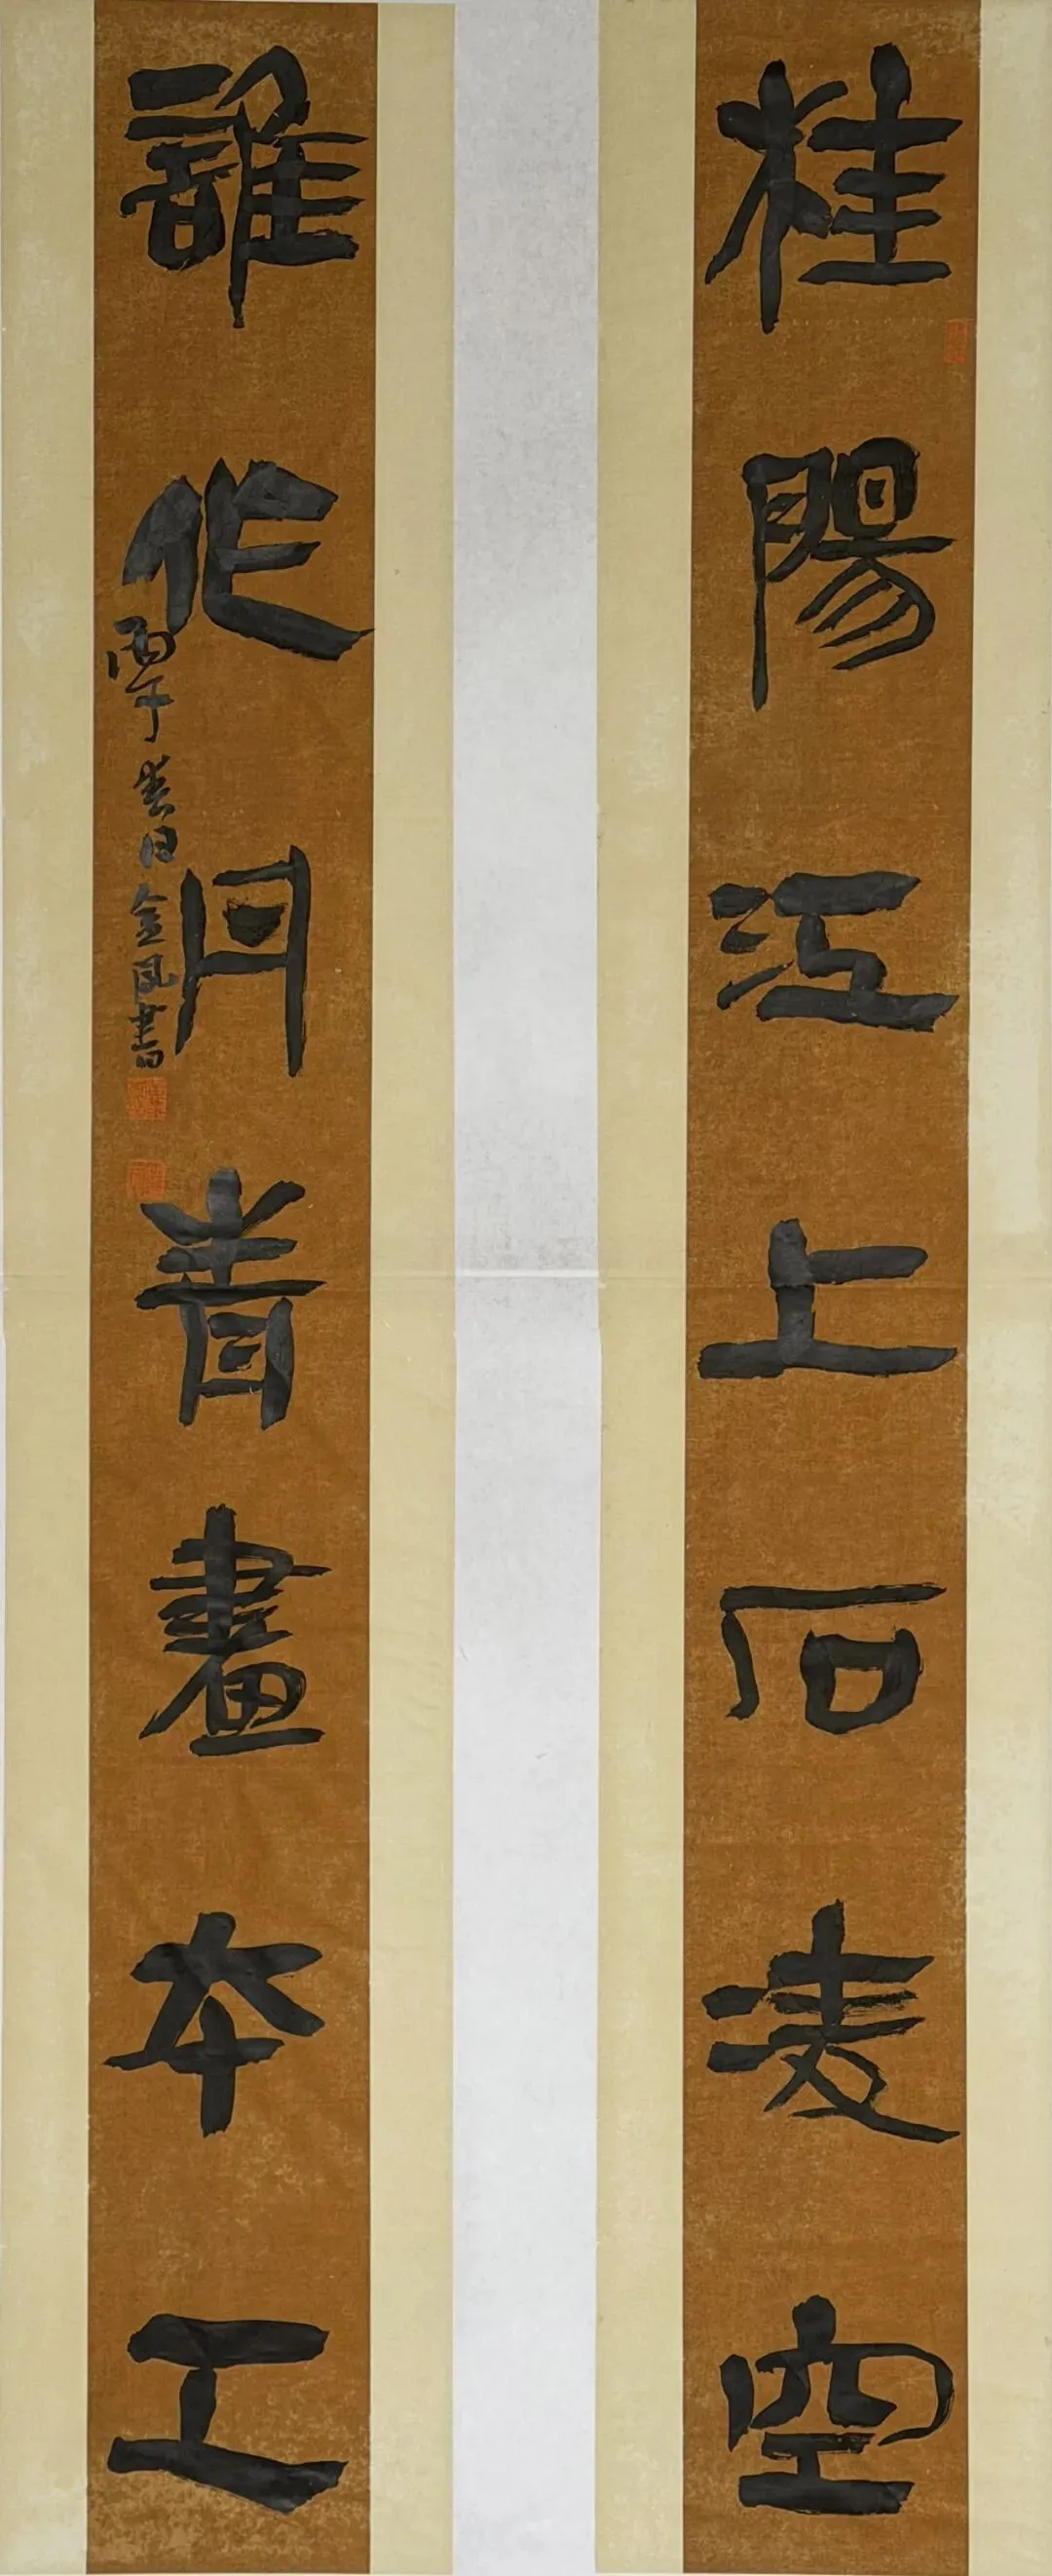 桂陽江上石凌空
誰作丹青畫本工
丙午春日金鳳書